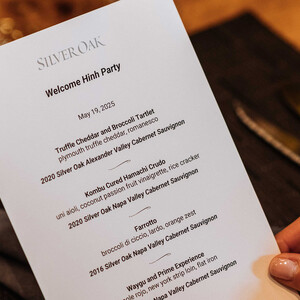 SILVER OAK
Welcome Hinh Party
May 19, 2025
Truffle Cheddar and Broccoli Tartlet
plymouth truffle cheddar, romanesco
2020 Silver Oak Alexander Valley Cabernet Sauvignon
Kombu Cured Hamachi Crudo
uni aioli, coconut passion fruit vinaigrette, rice cracker
2020 Silver Oak Napa Valley Cabernet Sauvignon
Farrotto
broccoli di ciccio, lardo, orange zest
2016 Silver Oak Napa Valley Cabernet Sauvignon
Waygu and Prime Experience
rojo, new york strip loin, flat iron
Napa Valley Cabernet Sauvignon